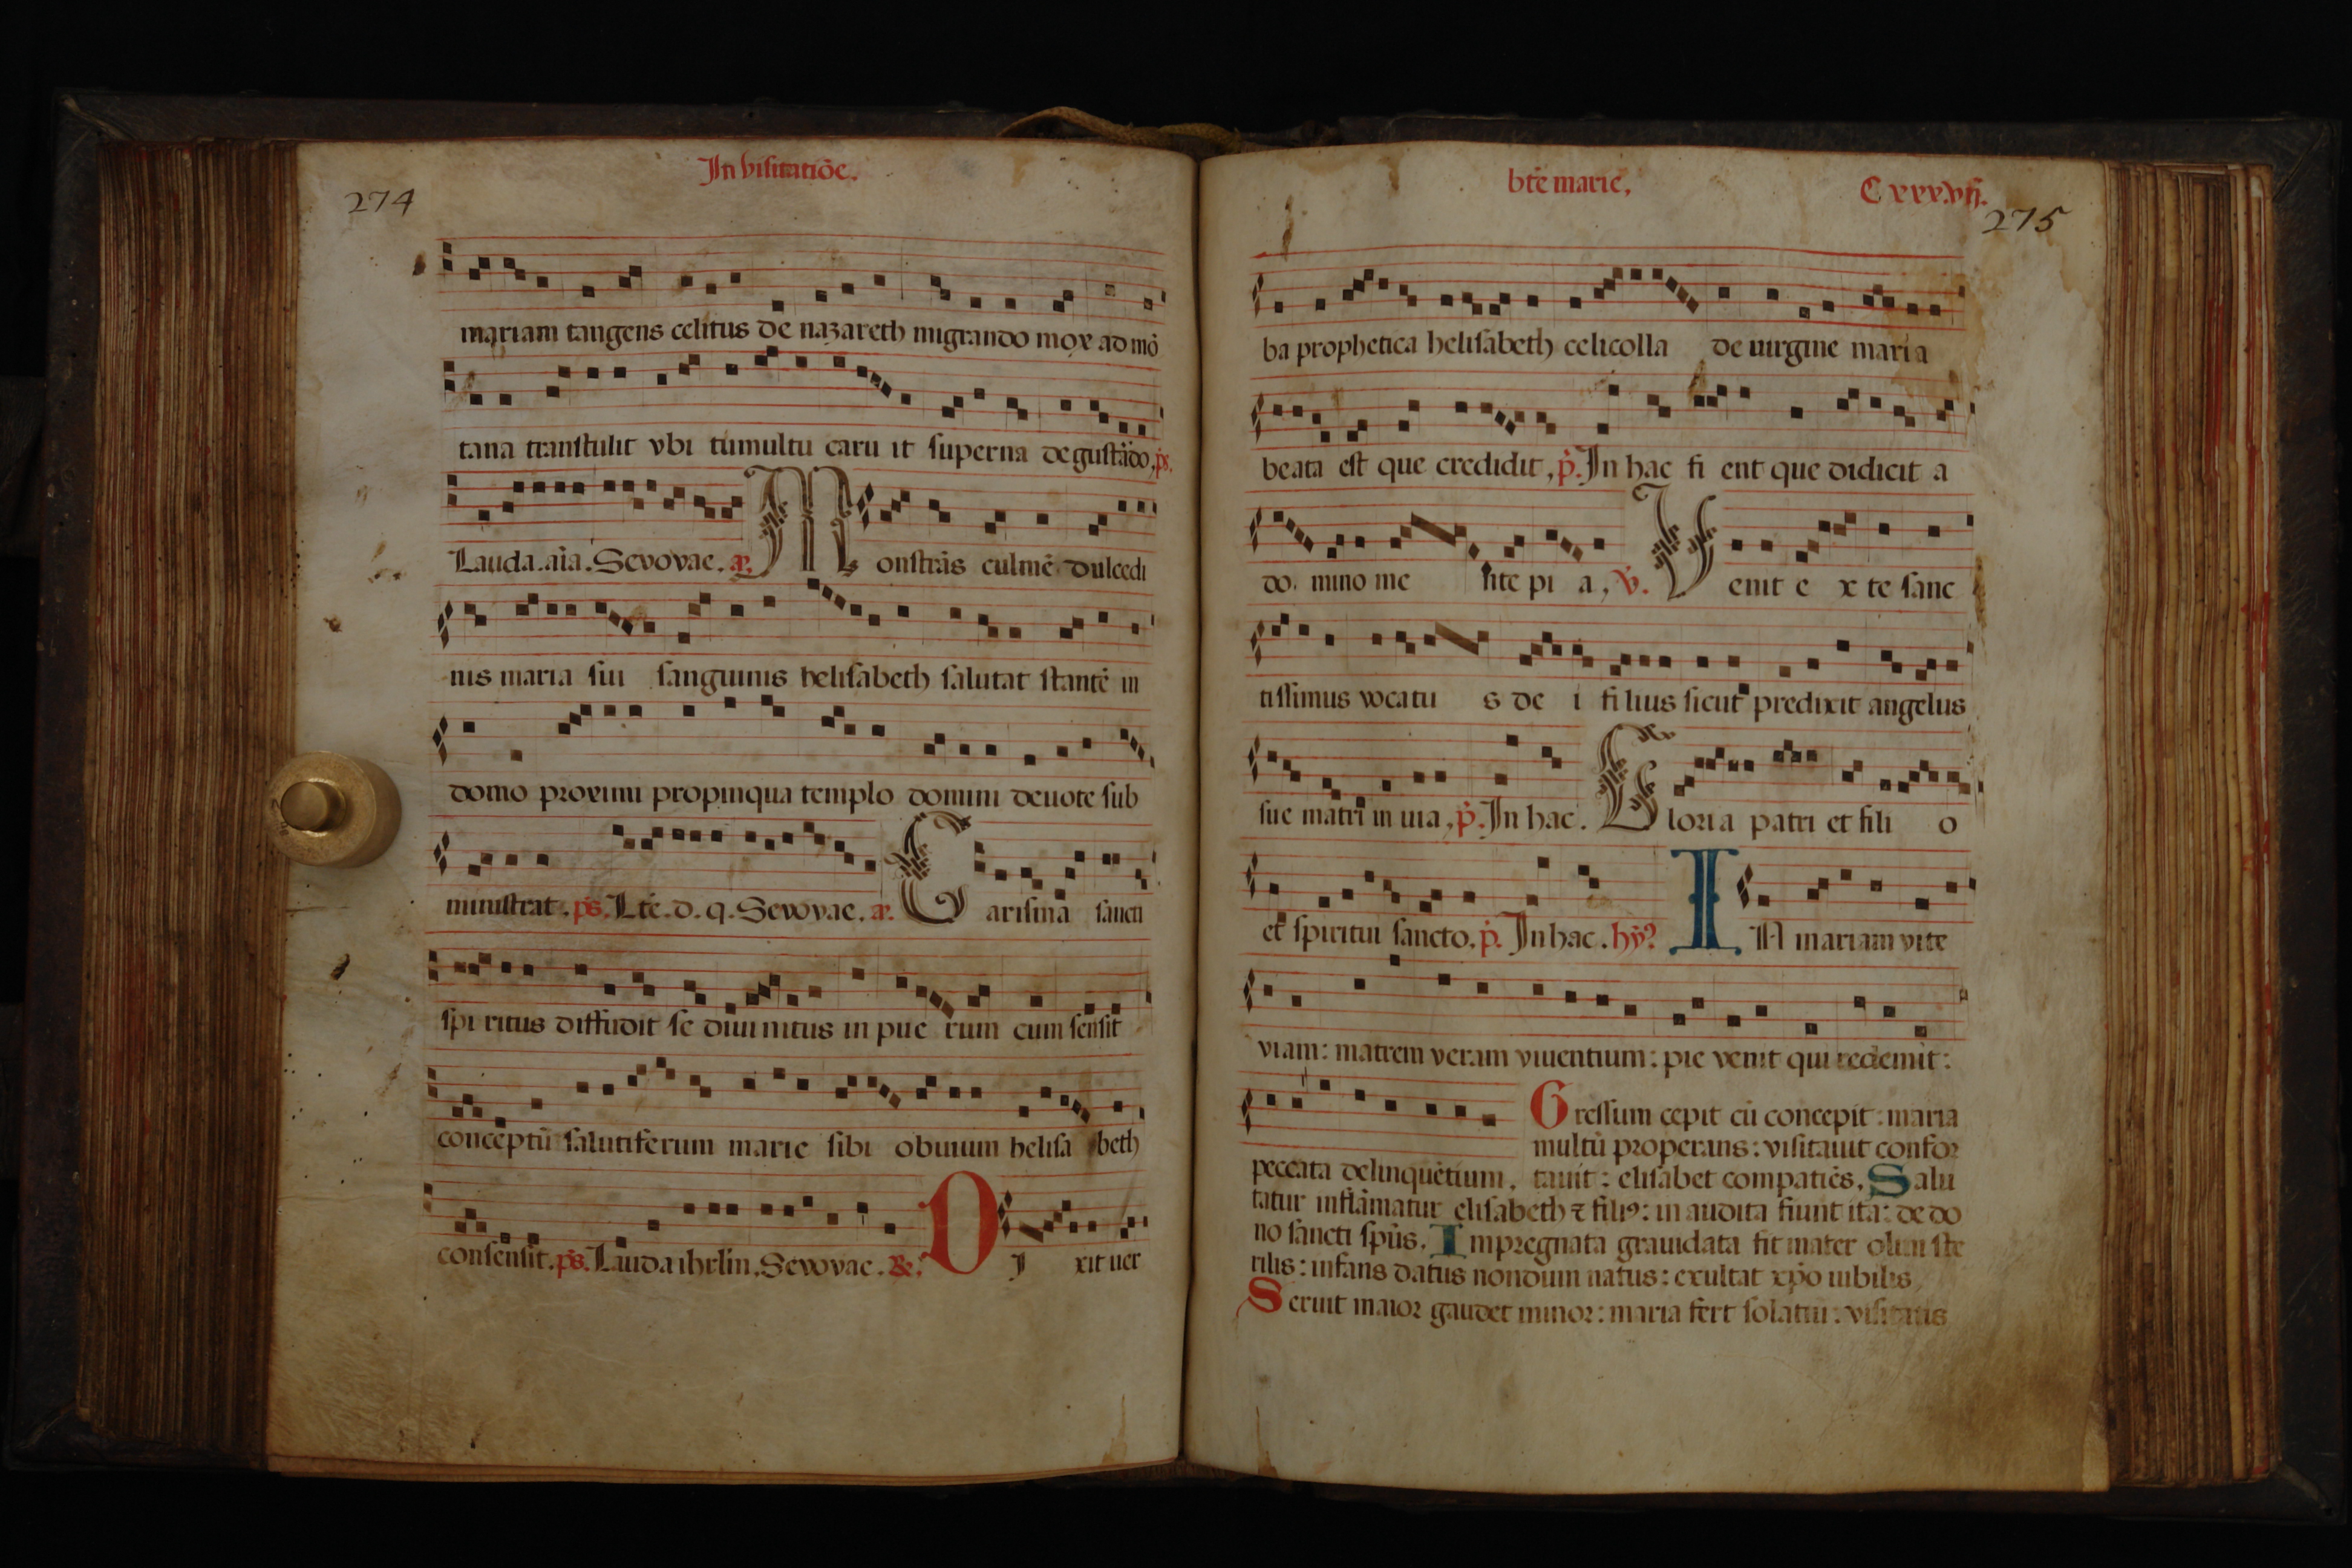 In visitatiōe.
274
mariam tangens celitus de nazareth migrando mox ad mō
tana transtulit vbi tumultu caru it superna degustādo, ps.
Lauda.aīa.Sevovae. a. M onstrās culmē dulcedi
nis maria sui sanguinis helisabeth salutat stantē in
domo proximi propinqua templo domini deuote sub
ministrat. ps. Lte.d.q.Sevovae. a. C arisima sancti
spi ritus diffudit se diui nitus in pue rum cum sensit
conceptū salutiferum marie sibi obuium helisa beth
consensit. ps. Lauda ihrlm. Sevovae. D I xit uer
bte marie, Cxxxvij.
275
ba prophetica helisabeth celicolla de uirgine maria
beata est que credidit, p. In hac fi ent que didicit a
do mino me nte pi a, v. V enit e x te sanc
tissimus vocatu s de i filius sicut predixit angelus
sue matri in uia, p. In hac. G loria patri et fili o
et spiritui sancto. p. In hac. hy? I N mariam vite
viam: matrem veram viuentium: pie venit qui redemit:
peccata delinquētium. Gressum cepit cū concepit: maria
multū properans: visitauit confor
tauit: elisabet compatiēs, Salu
tatur inflāmatur elisabeth ⁊ filiꝰ: in audita fiunt ita: de do
no sancti spūs. Impregnata grauidata fit mater olim ste
rilis: infans datus nondum natus: exultat xp̄o iubilis,
Seruit maior gaudet minor: maria fert solatiu: visitatis